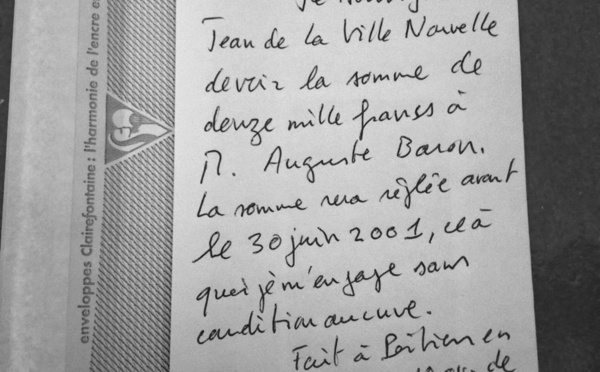 Jean de la Ville Nouvelle
devoir la somme de
douze mille francs à
M. Auguste Baron.
La somme sera réglée avant
le 30 juin 2001, ce à
quoi je m'engage sans
condition aucune.
Fait à Poitiers en
enveloppes Clairefontaine : l'harmonie de l'encre e